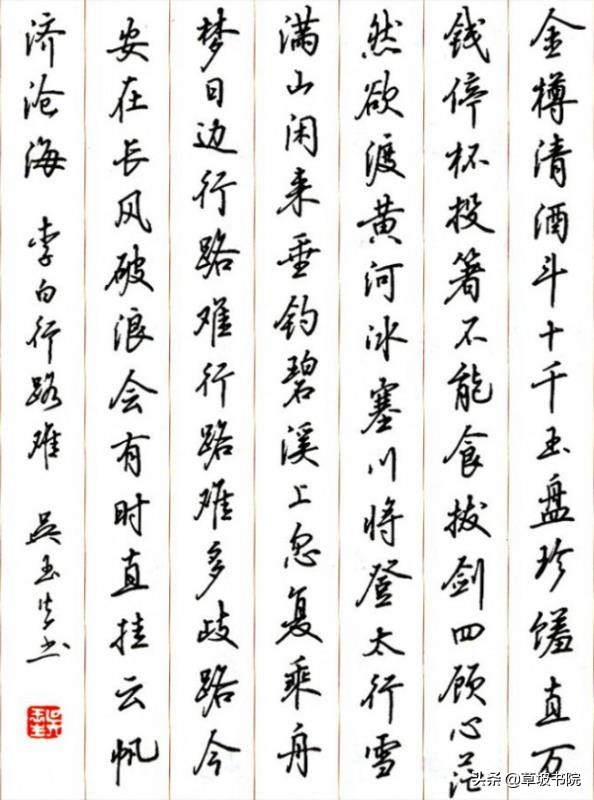 金樽清酒斗十千玉盘珍馐直万
钱停杯投箸不能食拔剑四顾心茫
然欲渡黄河冰塞川将登太行雪
满山闲来垂钓碧溪上忽复乘舟
梦日边行路难行路难多歧路今
安在长风破浪会有时直挂云帆
济沧海 李白行路难 吴玉生书
头条 @草坡书院